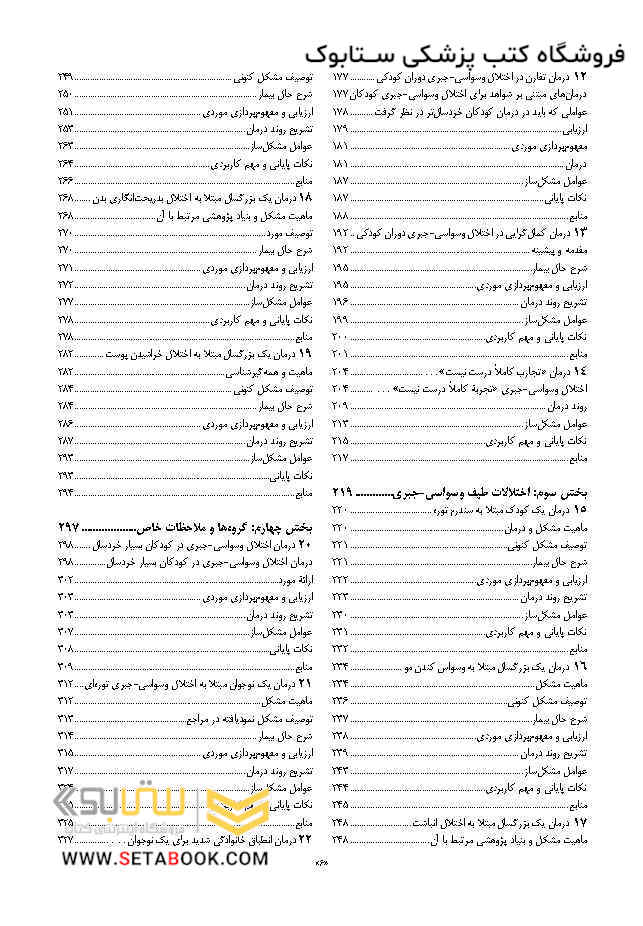 فروشگاه کتب پزشکی ستابوک
۱۲ درمان تقارن در اختلال وسواسی-جبری دوران کودکی ........... ۱۷۷
درمان‌های مبتنی بر شواهد برای اختلال وسواسی-جبری کودکان ۱۷۷
عواملی که باید در درمان کودکان خردسال‌تر در نظر گرفت ........... ۱۷۸
ارزیابی ........... ۱۷۹
مفهوم‌پردازی موردی ........... ۱۸۱
درمان ........... ۱۸۱
عوامل مشکل‌ساز ........... ۱۸۷
نکات پایانی ........... ۱۸۷
منابع ........... ۱۸۸
۱۳ درمان کمال‌گرایی در اختلال وسواسی-جبری دوران کودکی .. ۱۹۲
مقدمه و پیشینه ........... ۱۹۲
شرح حال بیمار ........... ۱۹۵
ارزیابی و مفهوم‌پردازی موردی ........... ۱۹۵
تشریح روند درمان ........... ۱۹۶
عوامل مشکل‌ساز ........... ۱۹۹
نکات پایانی و مهم کاربردی ........... ۲۰۰
منابع ........... ۲۰۱
۱۴ درمان «تجارب کاملاً درست نیست» ........... ۲۰۴
اختلال وسواسی-جبری «تجربهٔ کاملاً درست نیست» ........... ۲۰۴
روند درمان ........... ۲۰۹
عوامل مشکل‌ساز ........... ۲۱۳
نکات پایانی و مهم کاربردی ........... ۲۱۵
منابع ........... ۲۱۷
بخش سوم: اختلالات طیف وسواسی-جبری ........... ۲۱۹
۱۵ درمان یک کودک مبتلا به سندرم توره ........... ۲۲۰
ماهیت مشکل و درمان ........... ۲۲۰
توصیف مشکل کنونی ........... ۲۲۱
شرح حال بیمار ........... ۲۲۱
ارزیابی و مفهوم‌پردازی موردی ........... ۲۲۲
تشریح روند درمان ........... ۲۲۳
عوامل مشکل‌ساز ........... ۲۳۰
نکات پایانی و مهم کاربردی ........... ۲۳۱
منابع ........... ۲۳۲
۱۶ درمان یک بزرگسال مبتلا به وسواس کندن مو ........... ۲۳۴
ماهیت مشکل ........... ۲۳۴
توصیف مشکل کنونی ........... ۲۳۶
شرح حال بیمار ........... ۲۳۷
ارزیابی و مفهوم‌پردازی موردی ........... ۲۳۸
تشریح روند درمان ........... ۲۳۹
عوامل مشکل‌ساز ........... ۲۴۳
نکات پایانی و مهم کاربردی ........... ۲۴۴
منابع ........... ۲۴۵
۱۷ درمان یک بزرگسال مبتلا به اختلال انباشت ........... ۲۴۸
ماهیت مشکل و بنیاد پژوهشی مرتبط با آن ........... ۲۴۸
توصیف مشکل کنونی ........... ۲۴۹
شرح حال بیمار ........... ۲۵۰
ارزیابی و مفهوم‌پردازی موردی ........... ۲۵۱
تشریح روند درمان ........... ۲۵۳
عوامل مشکل‌ساز ........... ۲۶۳
نکات پایانی و مهم کاربردی ........... ۲۶۴
منابع ........... ۲۶۶
۱۸ درمان یک بزرگسال مبتلا به اختلال بدریخت‌انگاری بدن ...... ۲۶۸
ماهیت مشکل و بنیاد پژوهشی مرتبط با آن ........... ۲۶۸
توصیف مورد ........... ۲۷۰
شرح حال بیمار ........... ۲۷۰
ارزیابی و مفهوم‌پردازی موردی ........... ۲۷۱
تشریح روند درمان ........... ۲۷۲
عوامل مشکل‌ساز ........... ۲۷۷
نکات پایانی و مهم کاربردی ........... ۲۷۸
منابع ........... ۲۷۸
۱۹ درمان یک بزرگسال مبتلا به اختلال خراشیدن پوست ........... ۲۸۲
ماهیت و همه‌گیرشناسی ........... ۲۸۲
توصیف مشکل کنونی ........... ۲۸۴
شرح حال بیمار ........... ۲۸۴
ارزیابی و مفهوم‌پردازی موردی ........... ۲۸۶
تشریح روند درمان ........... ۲۸۷
عوامل مشکل‌ساز ........... ۲۹۳
نکات پایانی ........... ۲۹۳
منابع ........... ۲۹۴
بخش چهارم: گروه‌ها و ملاحظات خاص ........... ۲۹۷
۲۰ درمان اختلال وسواسی-جبری در کودکان بسیار خردسال ...... ۲۹۸
درمان اختلال وسواسی-جبری در کودکان بسیار خردسال ...... ۲۹۸
ارائهٔ مورد ........... ۳۰۲
ارزیابی و مفهوم‌پردازی موردی ........... ۳۰۳
تشریح روند درمان ........... ۳۰۳
عوامل مشکل‌ساز ........... ۳۰۷
نکات پایانی ........... ۳۰۸
منابع ........... ۳۰۹
۲۱ درمان یک نوجوان مبتلا به اختلال وسواسی-جبری توره‌ای .... ۳۱۲
ماهیت مشکل ........... ۳۱۲
توصیف مشکل نمودیافته در مراجع ........... ۳۱۳
شرح حال بیمار ........... ۳۱۴
ارزیابی و مفهوم‌پردازی موردی ........... ۳۱۵
تشریح روند درمان ........... ۳۱۷
عوامل مشکل‌ساز
نکات پایانی و
منابع ........... ۳۲۵
۲۲ درمان انطباق خانوادگی شدید برای یک نوجوان ........... ۳۲۷
ستابوک
فروشگاه اینترنتی کتاب
WWW.SETABOOK.COM
«۶»